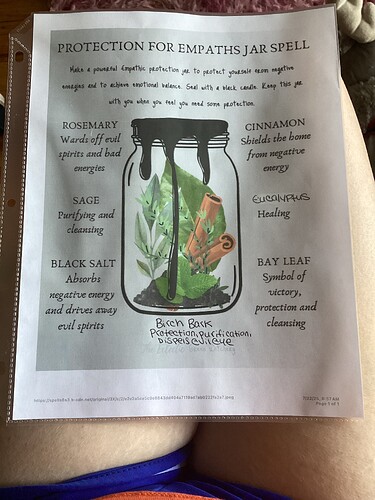 PROTECTION FOR EMPATHS JAR SPELL
Make a powerful Empathic protection jar to protect yourself from negative
energies and to achieve emotional balance. Seal with a black candle. Keep this jar
with you when you feel you need some protection.
ROSEMARY
Wards off evil
spirits and bad
energies
SAGE
Purifying and
cleansing
BLACK SALT
Absorbs
negative energy
and drives away
evil spirits
CINNAMON
Shields the home
from negative
energy
Eucalyptus
Healing
BAY LEAF
Symbol of
victory,
protection and
cleansing
Birch Bark
Protection, purification,
Page 1 of 1